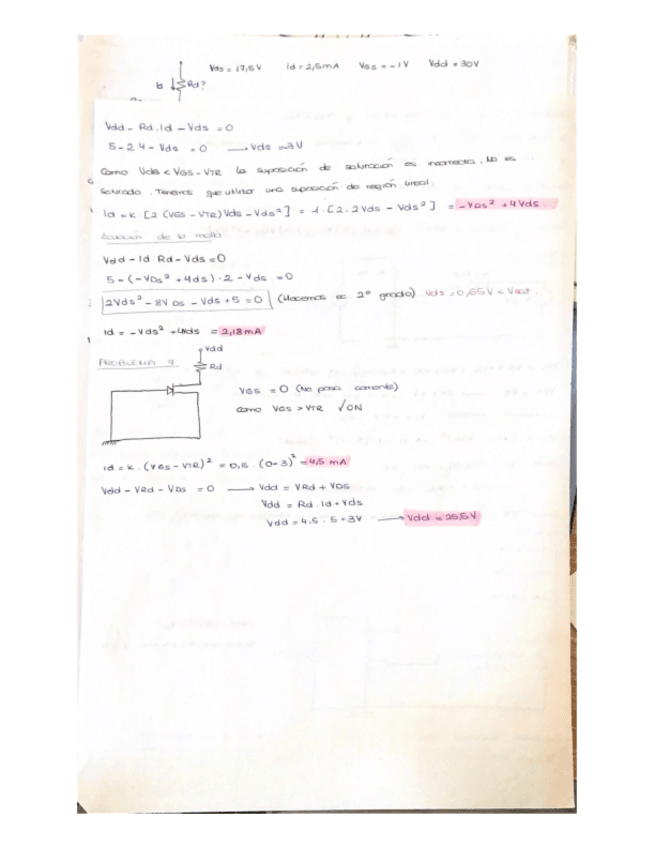 Vds = 17,5V Id = 2,5mA VGS = -1V Vdd = 30V
Id Rd?
Vdd - Rd.Id - Vds = 0
5 - 2.4 - Vds = 0 → Vds = -3V
Como Vds < VGS - VTR la suposición de saturación es incorrecta. No es
saturado. Tenemos que utilizar una suposición de región lineal.
Id = K [2 (VGS - VTR) Vds - Vds²] = 1 · [2·2Vds - Vds²] = -VDS² + 4Vds
Ecuación de la malla
Vdd - Id Rd - Vds = 0
5 - (-VDS² + 4ds) · 2 - Vds = 0
2Vds² - 8VDS - Vds + 5 = 0 (Hacemos ec 2º grado) Vds = 0,65V < Vsat.
Id = -Vds² + 4Vds = 2,18mA
PROBLEMA 7
Vdd
Rd
VGS = 0 (No pasa corriente)
como VGS > VTR √ON
Id = K · (VGS - VTR)² = 0,5 · (0-3)² = 4,5 mA
Vdd - VRd - VDS = 0 → Vdd = VRd + VDS
Vdd = Rd. Id + Vds
Vdd = 4.5 · 5 + 3V → Vdd = 25,5V